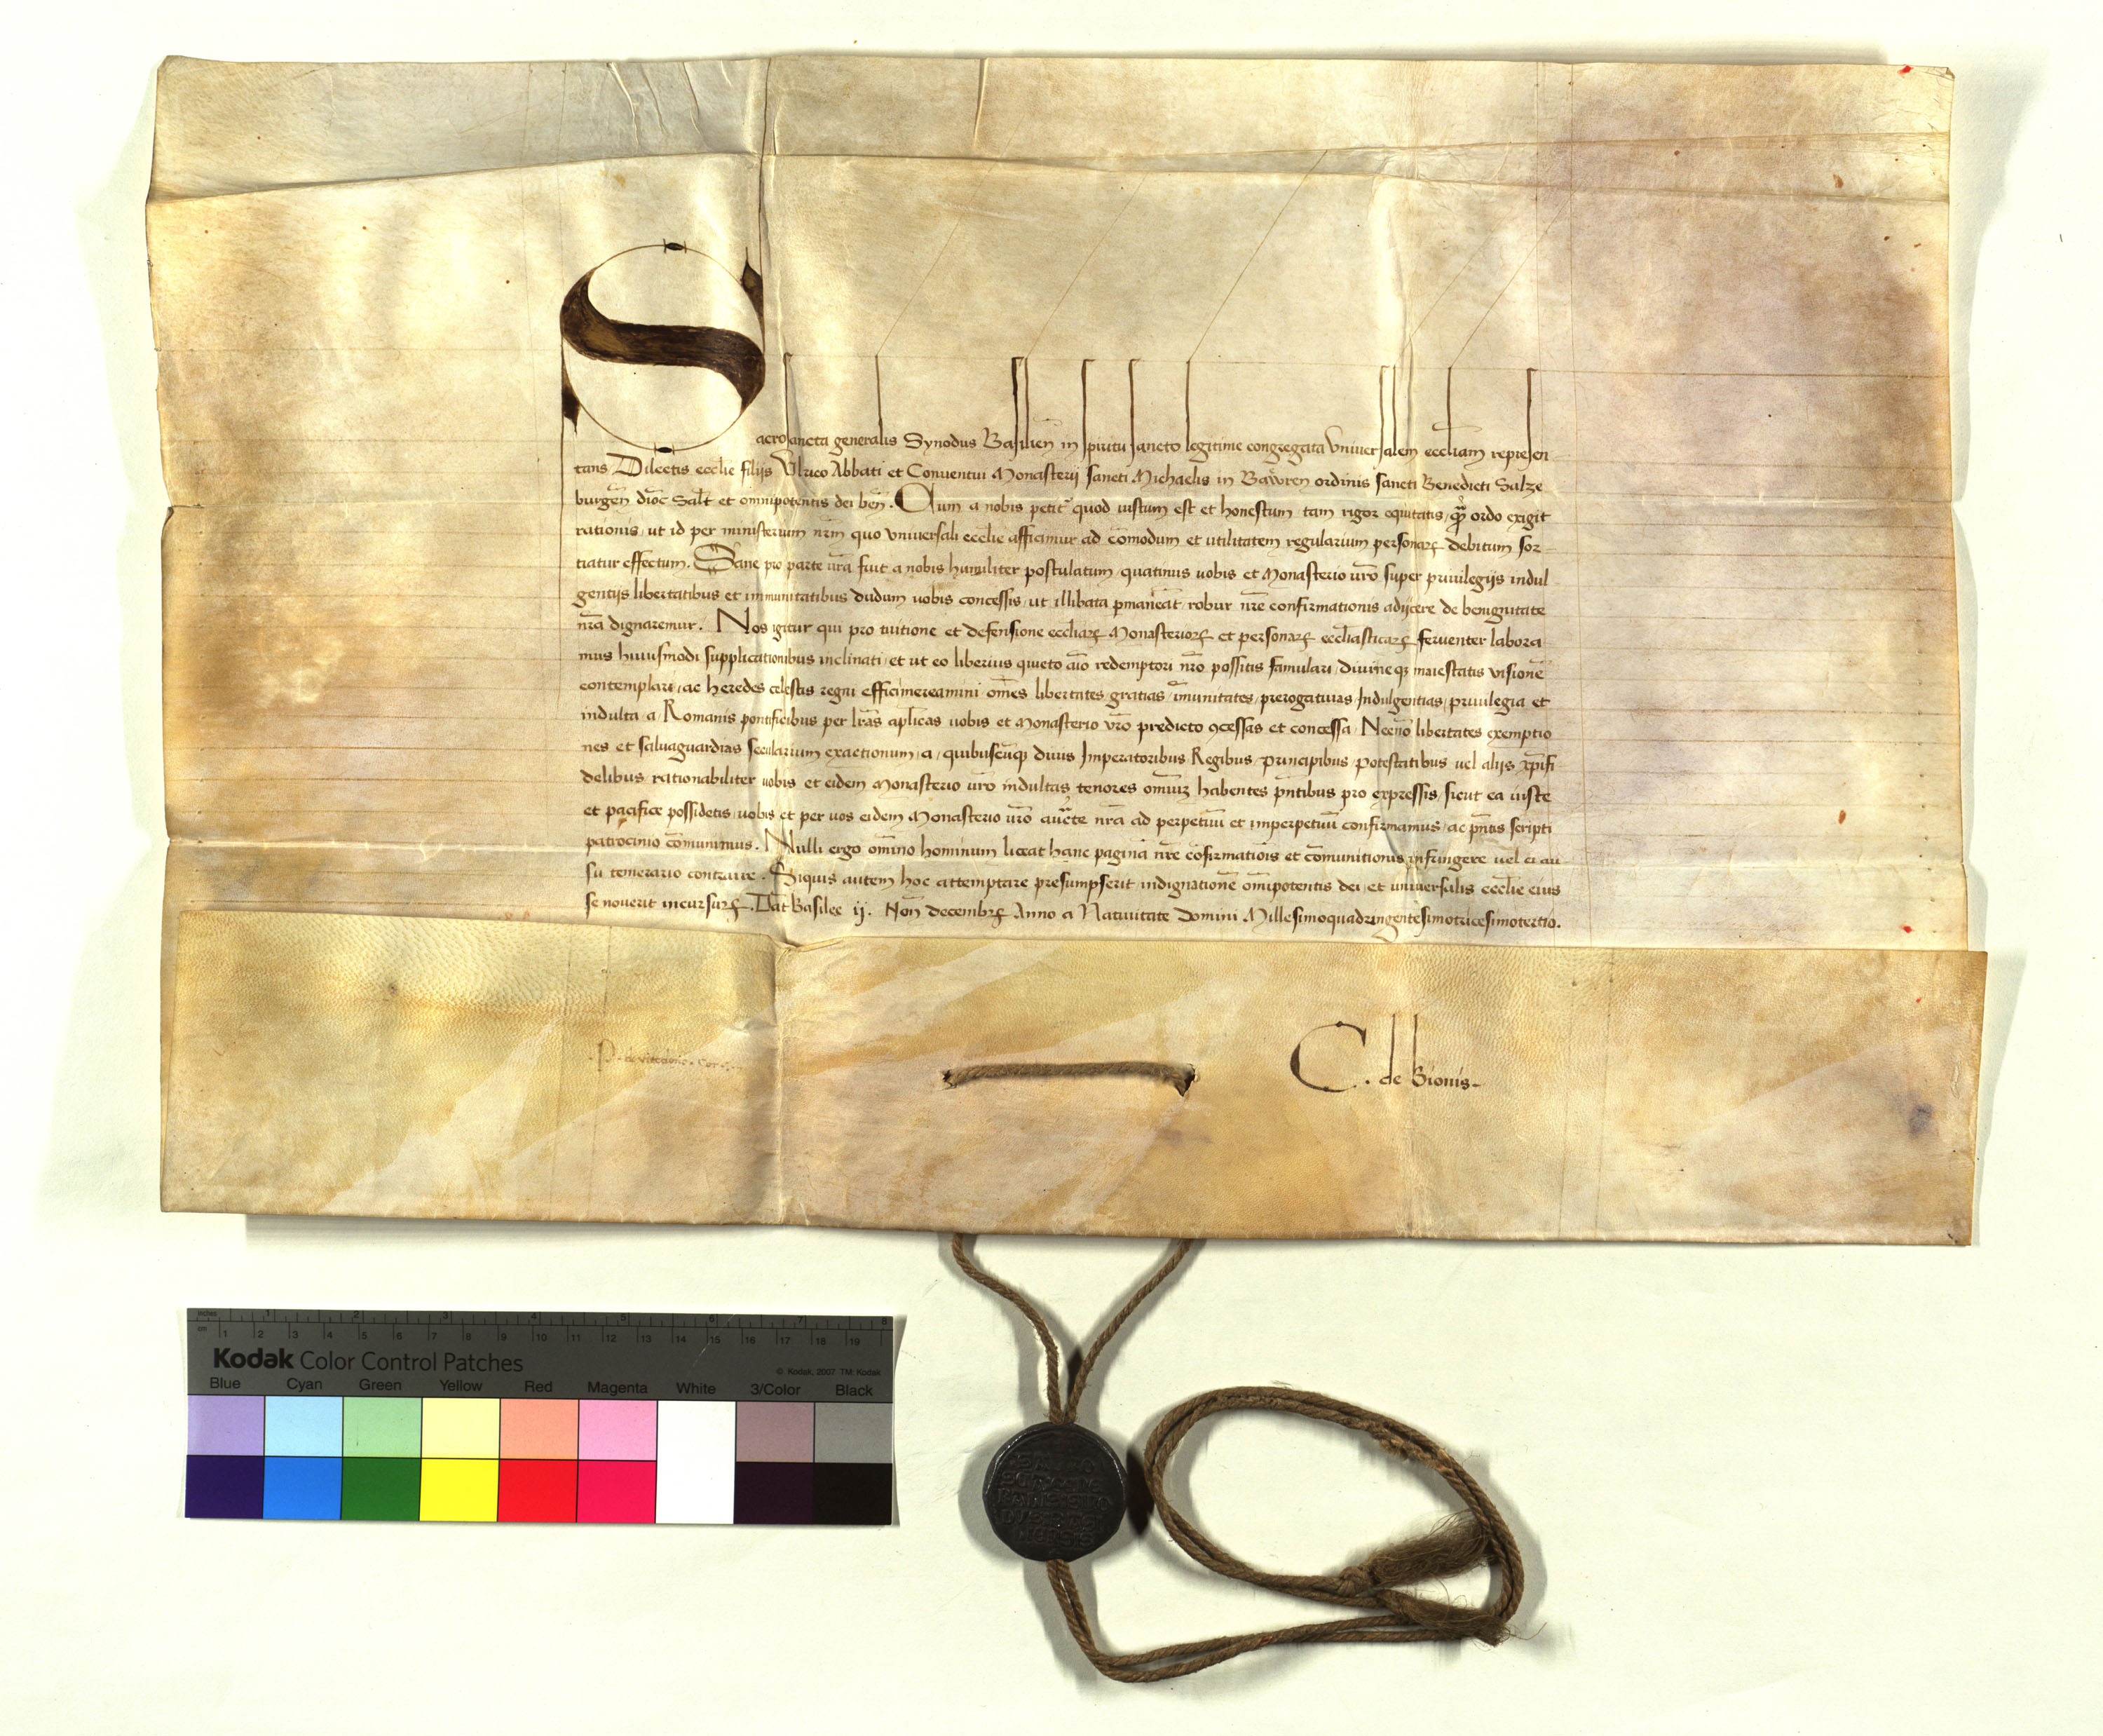 Sacrosancta generalis Synodus Basilien̄ in spiritu sancto legitime congregata Vniuersalem eccl̄iam represen
tans Dilectis eccl̄ie filijs Vlrico Abbati et Conuentui Monasterij sancti Michaelis in Bawren ordinis sancti Benedicti Salze
burgen̄ dioc̄ Salt̄ et omnipotentis dei ben̄. Cum a nobis petit᷑ quod iustum est et honestum, tam rigor equitatis, ꝙ̄ ordo exigit
rationis, ut id per ministerium nr̄m quo vniuersali eccl̄ie afficimur ad cōmodum et utilitatem regularium personaꝝ debitum sor
tiatur effectum. Sane pro parte ur̄a fuit a nobis humiliter postulatum, quatinus uobis et Monasterio ur̄o super priuilegijs indul
gentijs libertatibus et immunitatibus dudum uobis concessis, ut illibata p̱maneāt, robur nr̄e confirmationis adijcere de benignitate
nr̄a dignaremur. Nos igitur qui pro tuitione et defensione eccl̄iaꝝ Monasterioꝝ et personaꝝ eccl̄iasticaꝝ feruenter labora
mus huiusmodi supplicationibus inclinati, et ut eo liberius quieto aīo redemptori nr̄o possitis famulari, diuineqꝫ maiestatis visionē
contemplari, ac heredes celestis regni effici mereamini, om̄es libertates, gratias, īmunitates, prerogatiuas, Indulgentias, priuilegia et
indulta, a, Romanis pontificibus per lr̄as apl̄icas uobis et Monasterio vr̄o predicto ꝯcessas et concessa, Necnō libertates exemptio
nes et saluaguardias secularium exactionum, a, quibuscūqꝫ diuis Imperatoribus, Regibus, principibus, potestatibus uel alijs xp̄ifi
delibus, rationabiliter uobis et eidem Monasterio ur̄o indultas, tenores omniuꝫ habentes p̄ntibus pro expressis, sicut ea iuste
et pacifice possidetis, uobis et per uos eidem Monasterio ur̄o auc̄te nr̄a ad perpetuū et imperpetuū confirmamus, ac p̄ntis scripti
patrocinio cōmunimus. Nulli ergo om̄ino hominum liceat hanc paginā nr̄e cōfirmatiōis et cōmunitionis infringere uel ei au
su temerario contraire. Siquis autem hoc attemptare presumpserit indignationē om̄ipotentis dei, et uniuersalis eccl̄ie eius
se nouerit incursurꝝ. Dat̄ Basilee ij. Non̄ decembrꝝ Anno a Natiuitate Domini Millesimoquadringentesimotricesimotertio.
C. de Bionis
inches 1 2 3 4 5 6 7 8
cm 1 2 3 4 5 6 7 8 9 10 11 12 13 14 15 16 17 18 19
Kodak Color Control Patches
© Kodak, 2007 TM: Kodak
Blue Cyan Green Yellow Red Magenta White 3/Color Black